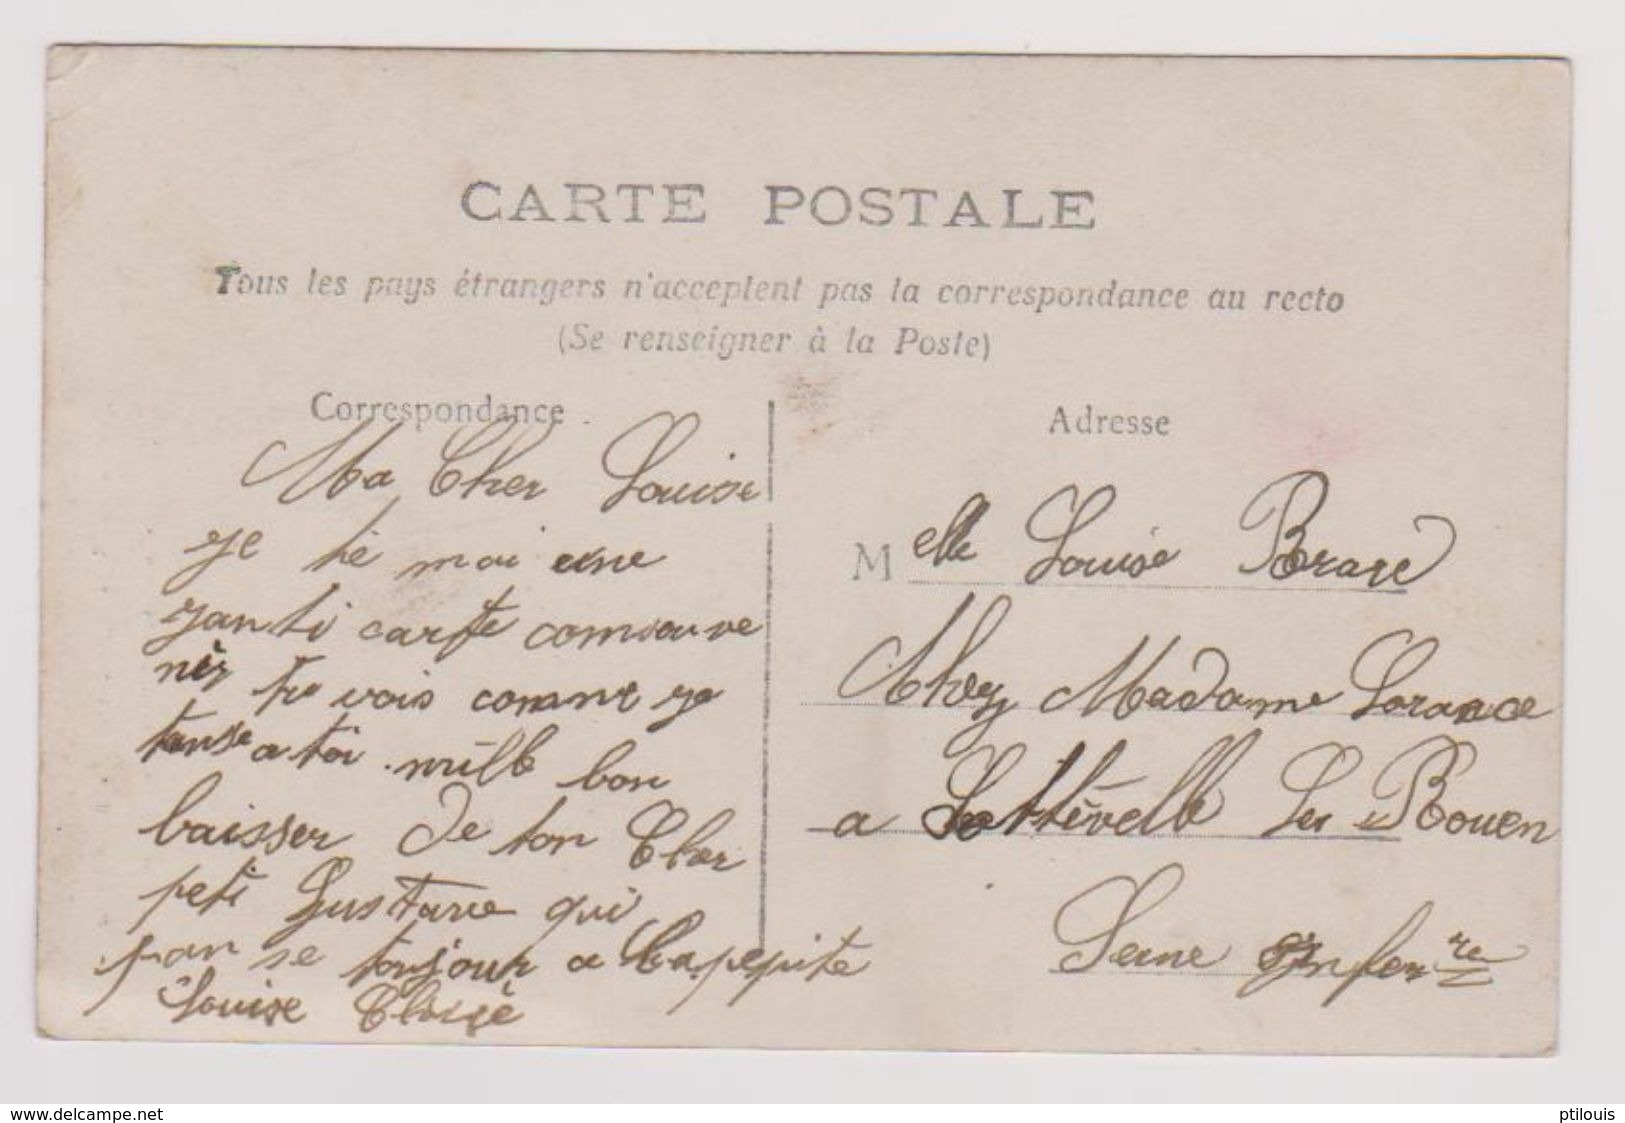 CARTE POSTALE
Tous les pays étrangers n'acceptent pas la correspondance au recto
(Se renseigner à la Poste)
Correspondance
Ma Cher Louise
ge hé moi une
ganti carte comsouve
nèz tu vois comme ge
tanse a toi mille bon
baisser de ton Cher
peti Gustave qui
pan se toujour a Ca pepite
Louise
Adresse
Melle Louise Brare
Chez Madame Lorance
a Sottèvelle Les Rouen
Seine Infer re
www.delcampe.net
ptilouis